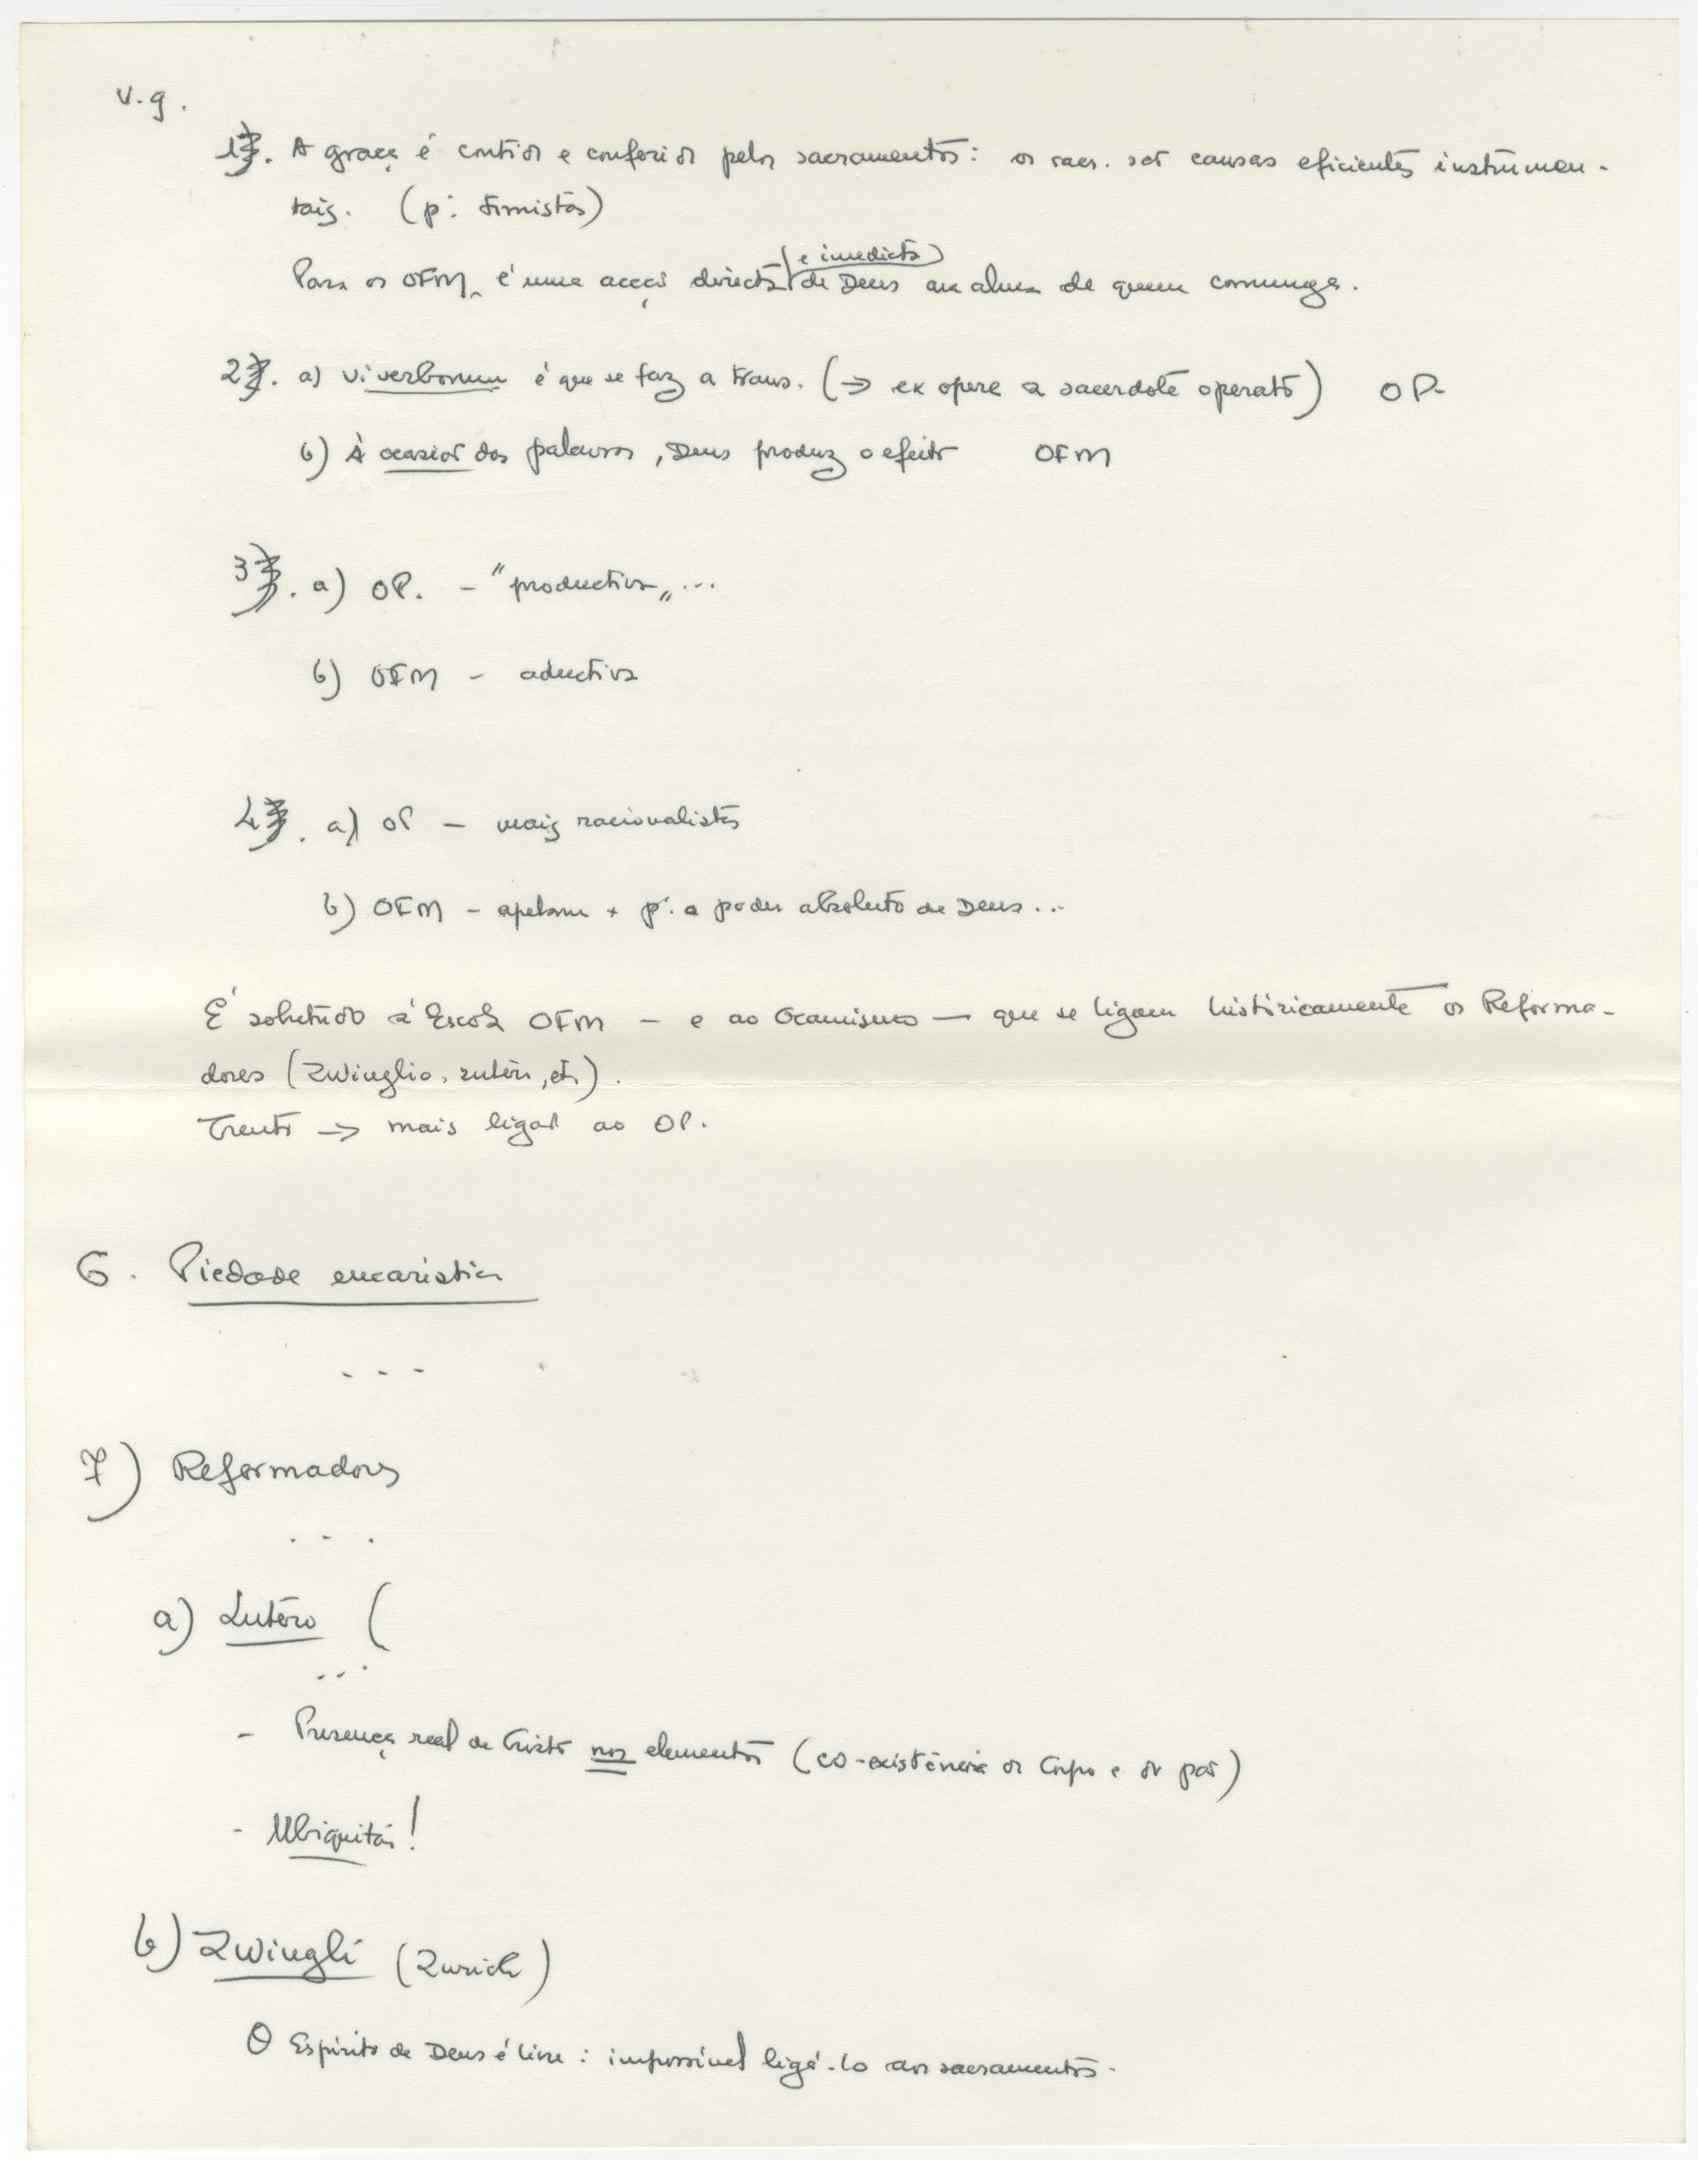 v.g.
1). A graça é contida e conferida pelos sacramentos: os sacr. são causas eficientes instrumen-
tais. (p: tomistas)
Para os OFM, é uma acção directa (e imediata) de Deus na alma de quem comunga.
2). a) vi verborum é que se faz a trans. (→ ex opere a sacerdote operato) OP.
b) À ocasião das palavras, Deus produz o efeito OFM
3). a) OP. - "productiva" ...
b) OFM - aductiva
4). a) OP - mais racionalistas
b) OFM - apelam + p. o poder absoluto de Deus...
É sobretudo à Escola OFM - e ao Ocamismo - que se ligam històricamente os Reforma-
dores (Zwinglio, Lutero, etc).
Trento → mais ligado ao OP.
6. Piedade eucarística
- - -
7) Reformadores
...
a) Lutero (
...
- Presença real de Cristo nos elementos (co-existência do Corpo e do pão)
- Ubiquitas!
b) Zwingli (Zurich)
O Espírito de Deus é livre: impossível ligá-lo aos sacramentos.